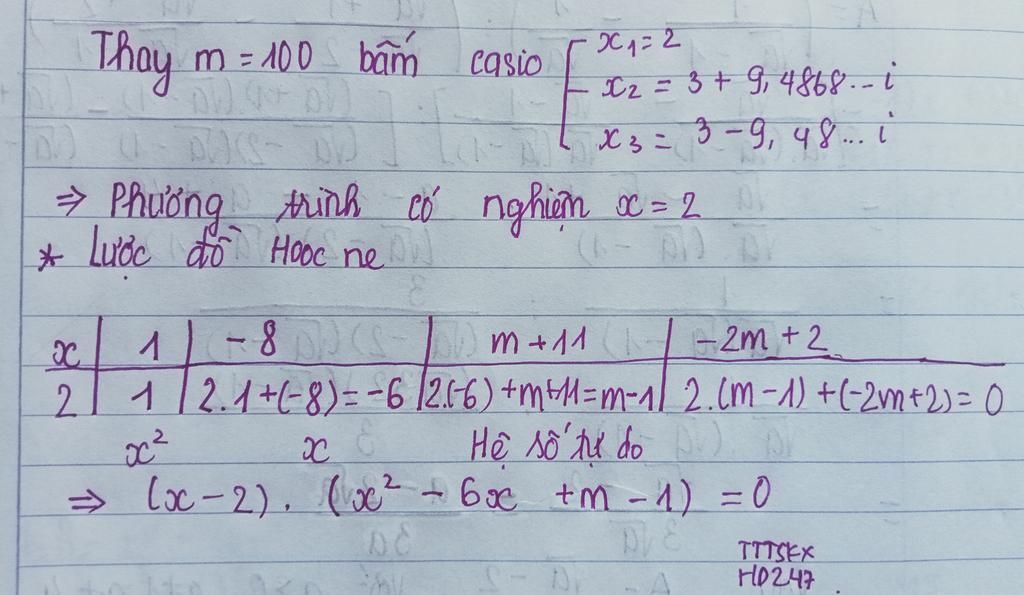 Thay m = 100 bấm casio [ x₁ = 2
x₂ = 3 + 9,4868... i
x₃ = 3 - 9,48... i
⇒ Phương trình có nghiệm x = 2
* Lược đồ Hooc ne
x | 1 | -8 | m + 11 | -2m + 2
2 | 1 | 2.1 + (-8) = -6 | 2.(-6) + m + 11 = m - 1 | 2.(m - 1) + (-2m + 2) = 0
x² x Hệ số tự do
⇒ (x - 2). (x² - 6x + m - 1) = 0
TTTSKX
HD247